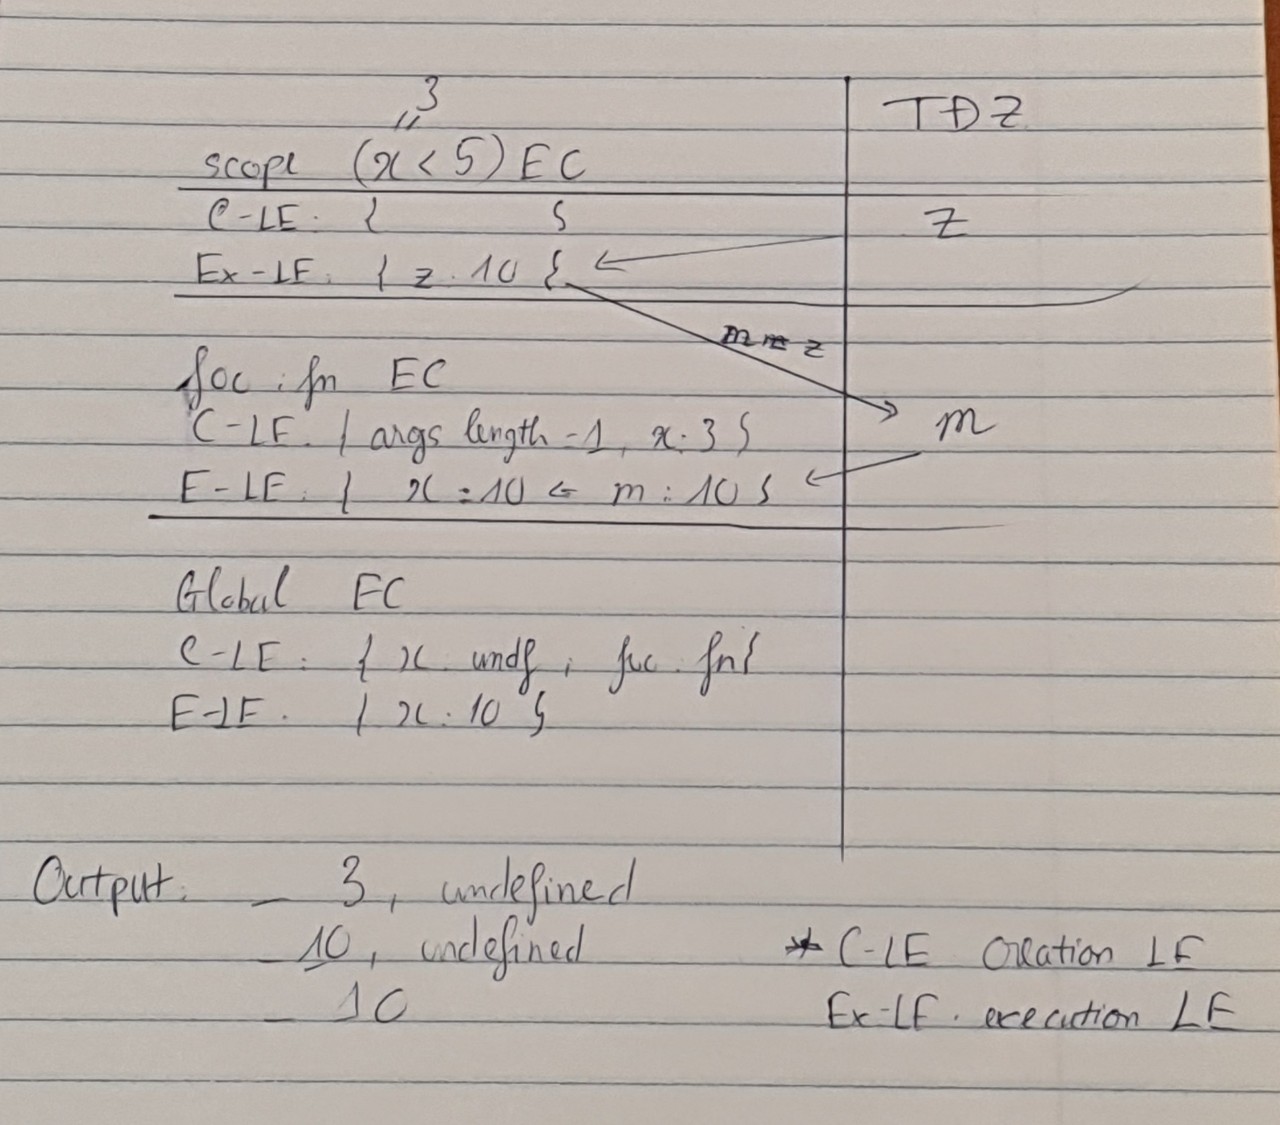 3
"
scope (x < 5) EC
TDZ
C-LE: { }
z
Ex-LE: { z: 10 }
m = z
foc: fn EC
C-LE: { args length -1, x: 3 }
m
E-LE: { x = 10 ← m: 10 }
Global EC
C-LE: { x undf, fuc: fn }
E-LE: { x: 10 }
Output: - 3, undefined
- 10, undefined
* C-LE Creation LE
- 10
Ex-LE: execution LE